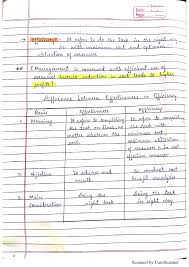 Date
Page
→ Efficiency :- It refers to do the task in the right way,
i.e. with minimum cost and optimum
utilization of resources.
[Management is concerned with efficient use of
resources because reduction in cost leads to higher
profits]
Difference between Effectiveness or Efficiency
Basis Effectiveness Efficiency
1) Meaning It refers to completing It refers to completing
the task on time the task
with
minimum cost
optimum utilization
of resources
2) Objective To achieve end To conduct cost
result benefit analysis
3) Main Doing the Doing the task
consideration right task in right way
Scanned by CamScanner